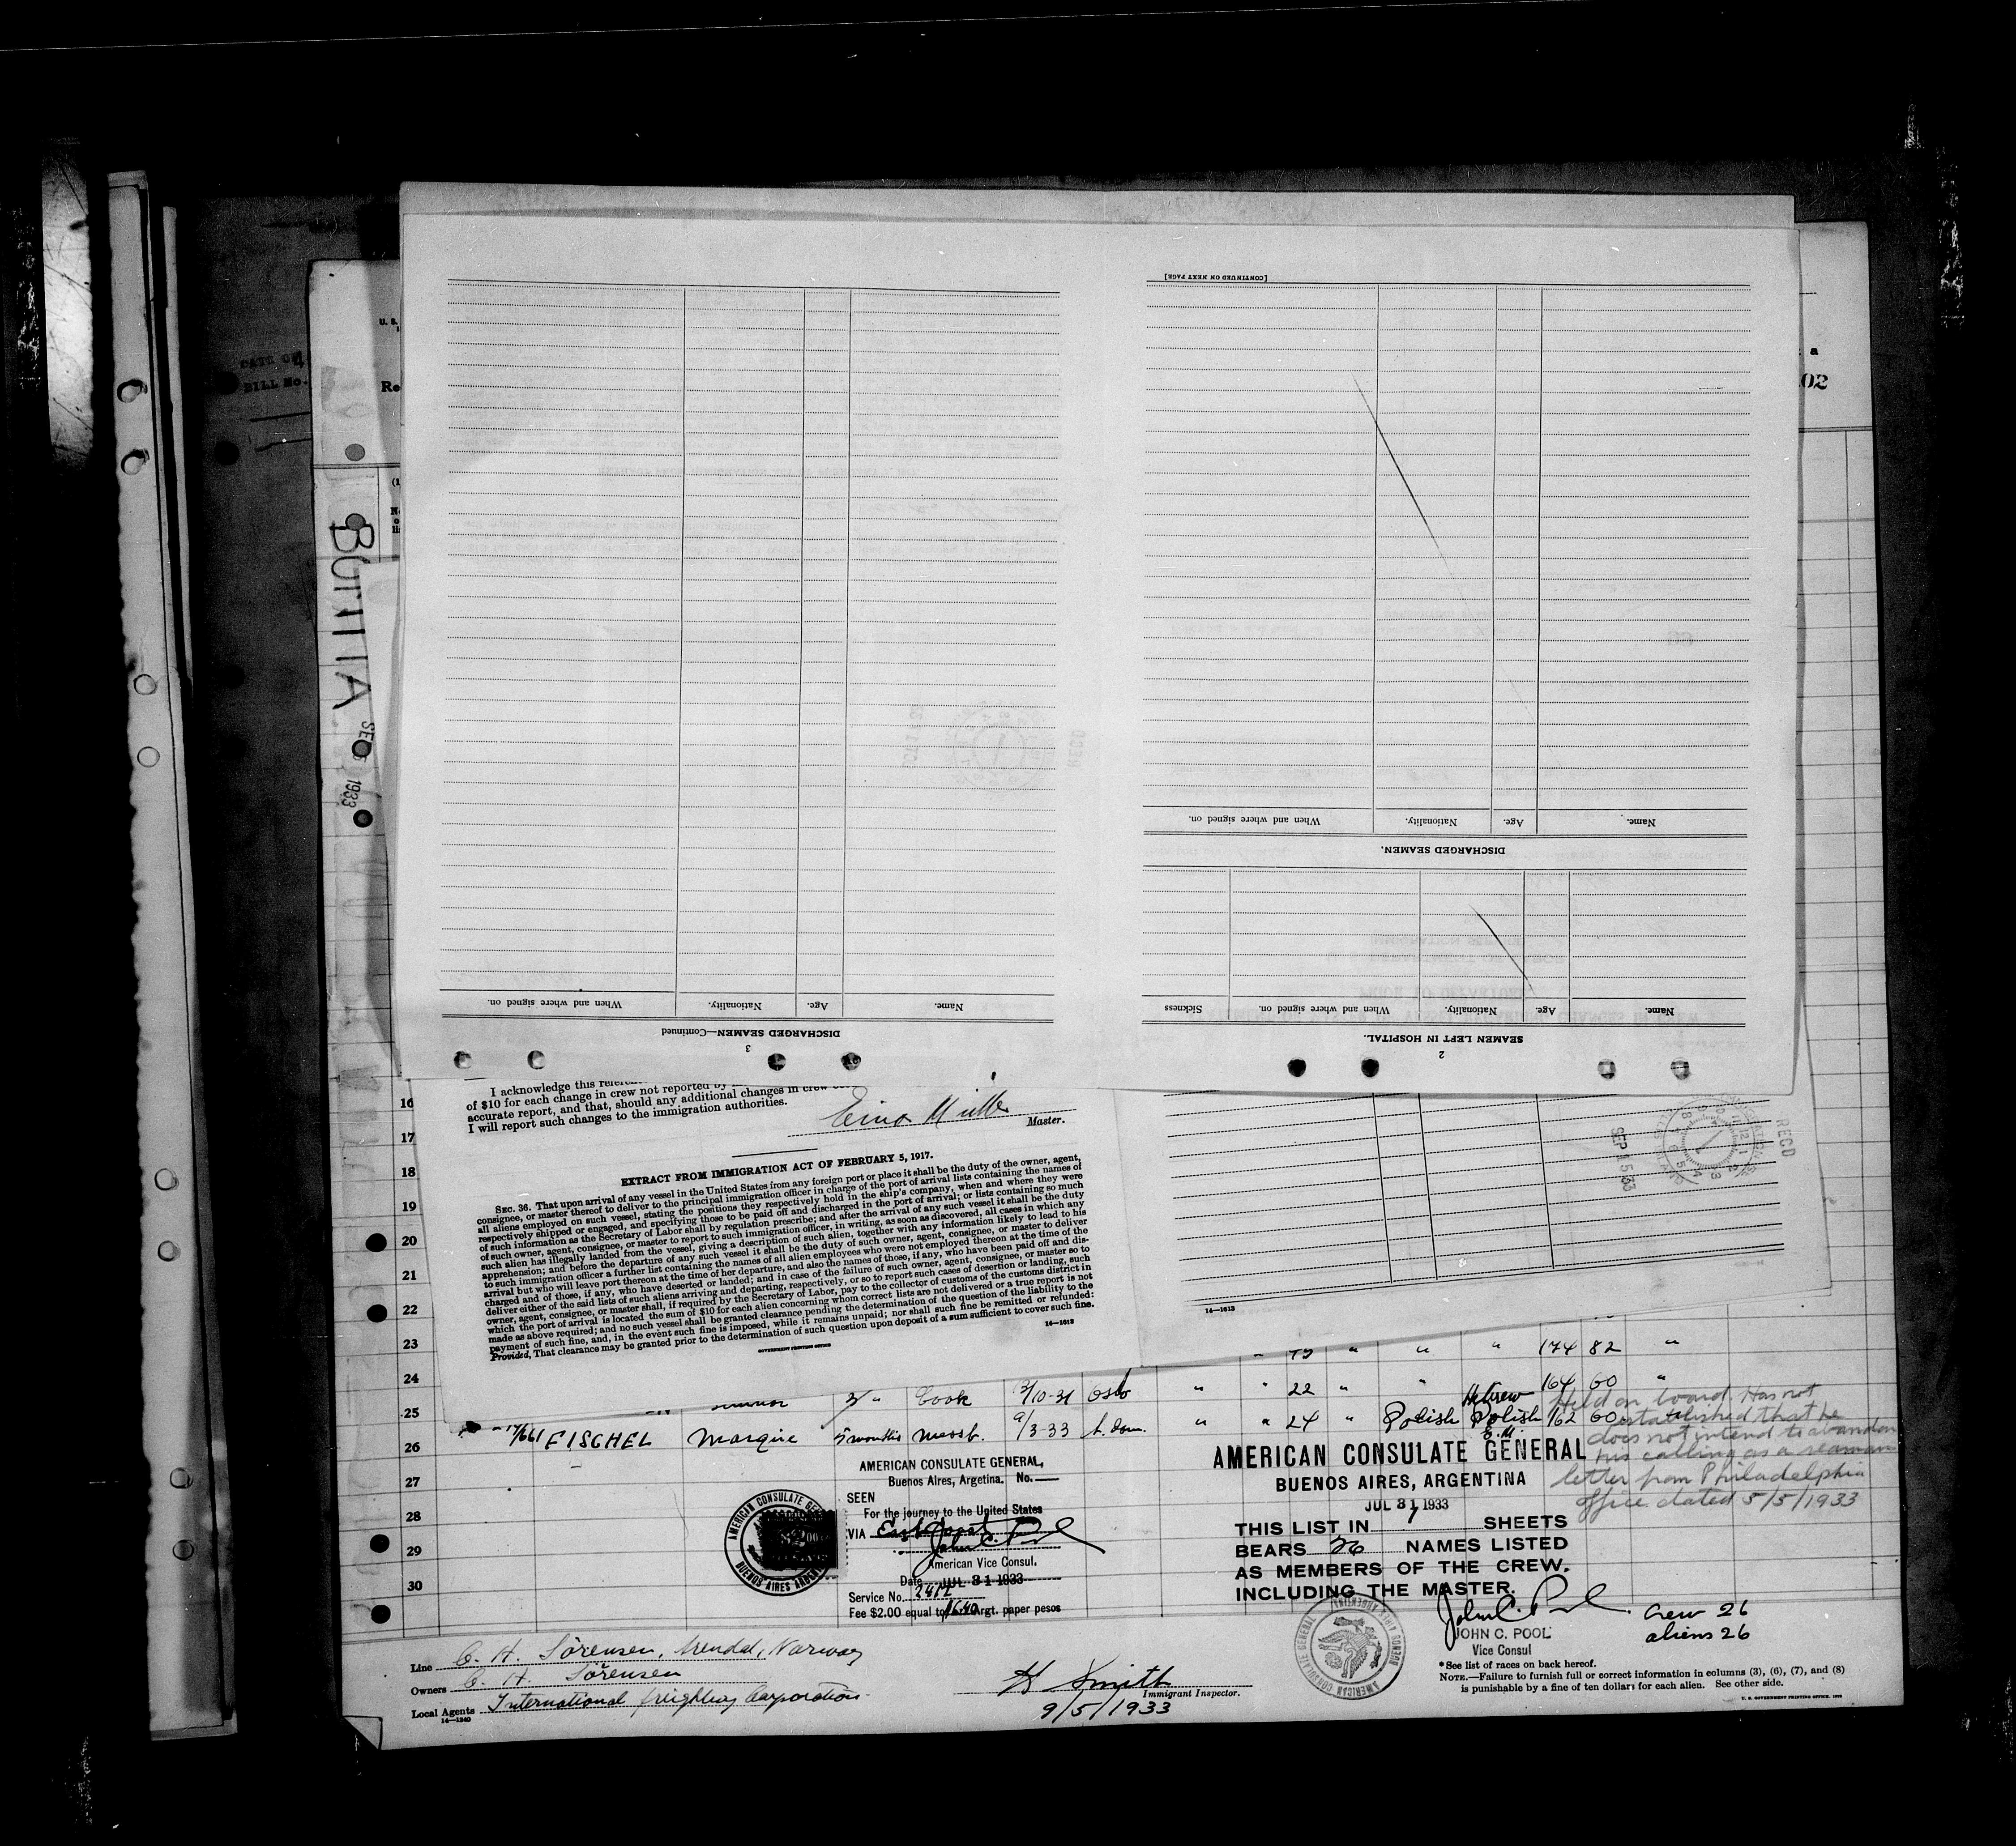 [CONTINUED ON NEXT PAGE]
Name. Age. Nationality. When and where signed on.
DISCHARGED SEAMEN.
Name. Age. Nationality. When and where signed on. Sickness
SEAMEN LEFT IN HOSPITAL.
2
Name. Age. Nationality. When and where signed on.
DISCHARGED SEAMEN—Continued
3
U. S.
DATE OF
BILL No.
Re
a
02
BUTTIA
SEP 1933
I acknowledge this
of $10 for each change in crew not reported by
accurate report, and that, should any additional changes in crew
I will report such changes to the immigration authorities.
Master.
EXTRACT FROM IMMIGRATION ACT OF FEBRUARY 5, 1917.
SEC. 36. That upon arrival of any vessel in the United States from any foreign port or place it shall be the duty of the owner, agent,
consignee, or master thereof to deliver to the principal immigration officer in charge of the port of arrival lists containing the names of
all aliens employed on such vessel, stating the positions they respectively hold in the ship's company, when and where they were
respectively shipped or engaged, and specifying those to be paid off and discharged in the port of arrival; or lists containing so much
of such information as the Secretary of Labor shall by regulation prescribe; and after the arrival of any such vessel it shall be the duty
of such owner, agent, consignee, or master to report to such immigration officer, in writing, as soon as discovered, all cases in which any
such alien has illegally landed from the vessel, giving a description of such alien, together with any information likely to lead to his
apprehension; and before the departure of any such vessel it shall be the duty of such owner, agent, consignee, or master to deliver
to such immigration officer a further list containing the names of all alien employees who were not employed thereon at the time of the
arrival but who will leave port thereon at the time of her departure, and also the names of those, if any, who have been paid off and dis-
charged and of those, if any, who have deserted or landed; and in case of the failure of such owner, agent, consignee, or master so to
deliver either of the said lists of such aliens arriving and departing, respectively, or so to report such cases of desertion or landing, such
owner, agent, consignee, or master shall, if required by the Secretary of Labor, pay to the collector of customs of the customs district in
which the port of arrival is located the sum of $10 for each alien concerning whom correct lists are not delivered or a true report is not
made as above required; and no such vessel shall be granted clearance pending the determination of the question of the liability to the
payment of such fine, and, in the event such fine is imposed, while it remains unpaid; nor shall such fine be remitted or refunded:
Provided, That clearance may be granted prior to the determination of such question upon deposit of a sum sufficient to cover such fine.
GOVERNMENT PRINTING OFFICE 14—1613
14—1613
RECD
SEP 5 33
16
17
18
19
20
21
22
23 " " " " 174 82 "
24 3/ " Cook 3/10-31 Oslo " " 22 " " 164 60 "
25 FISCHEL Marqire 5 months Messb. 9/3-33 " " 24 " Polish Polish Hebrew 162 60
26
27
28
29
30
Held on board. Has not
established that he
does not intend to abandon
his calling as a seaman
letter from Philadelphia
office dated 5/5/1933
AMERICAN CONSULATE GENERAL,
Buenos Aires, Argetina. No.
SEEN
For the journey to the United States
VIA East Coast
John C. Pool
American Vice Consul.
Date JUL 31 1933
Service No. 2412
Fee $2.00 equal to Argt. paper pesos
AMERICAN CONSULATE GENERAL
BUENOS AIRES ARGENTINA
AMERICAN CONSULATE GENERAL
BUENOS AIRES, ARGENTINA
JUL 31 1933
THIS LIST IN 1 SHEETS
BEARS 26 NAMES LISTED
AS MEMBERS OF THE CREW.
INCLUDING THE MASTER.
John C. Pool
JOHN C. POOL
Vice Consul
AMERICAN CONSULATE GENERAL
BUENOS AIRES ARGENTINA
Crew 26
aliens 26
Line C. H. Sörensen, Arendal, Norway
Owners C. H. Sörensen
Local Agents International Freighting Corporation
14—1240
H Smith
Immigrant Inspector.
9/5/1933
*See list of races on back hereof.
NOTE.—Failure to furnish full or correct information in columns (3), (6), (7), and (8)
is punishable by a fine of ten dollars for each alien. See other side.
U. S. GOVERNMENT PRINTING OFFICE